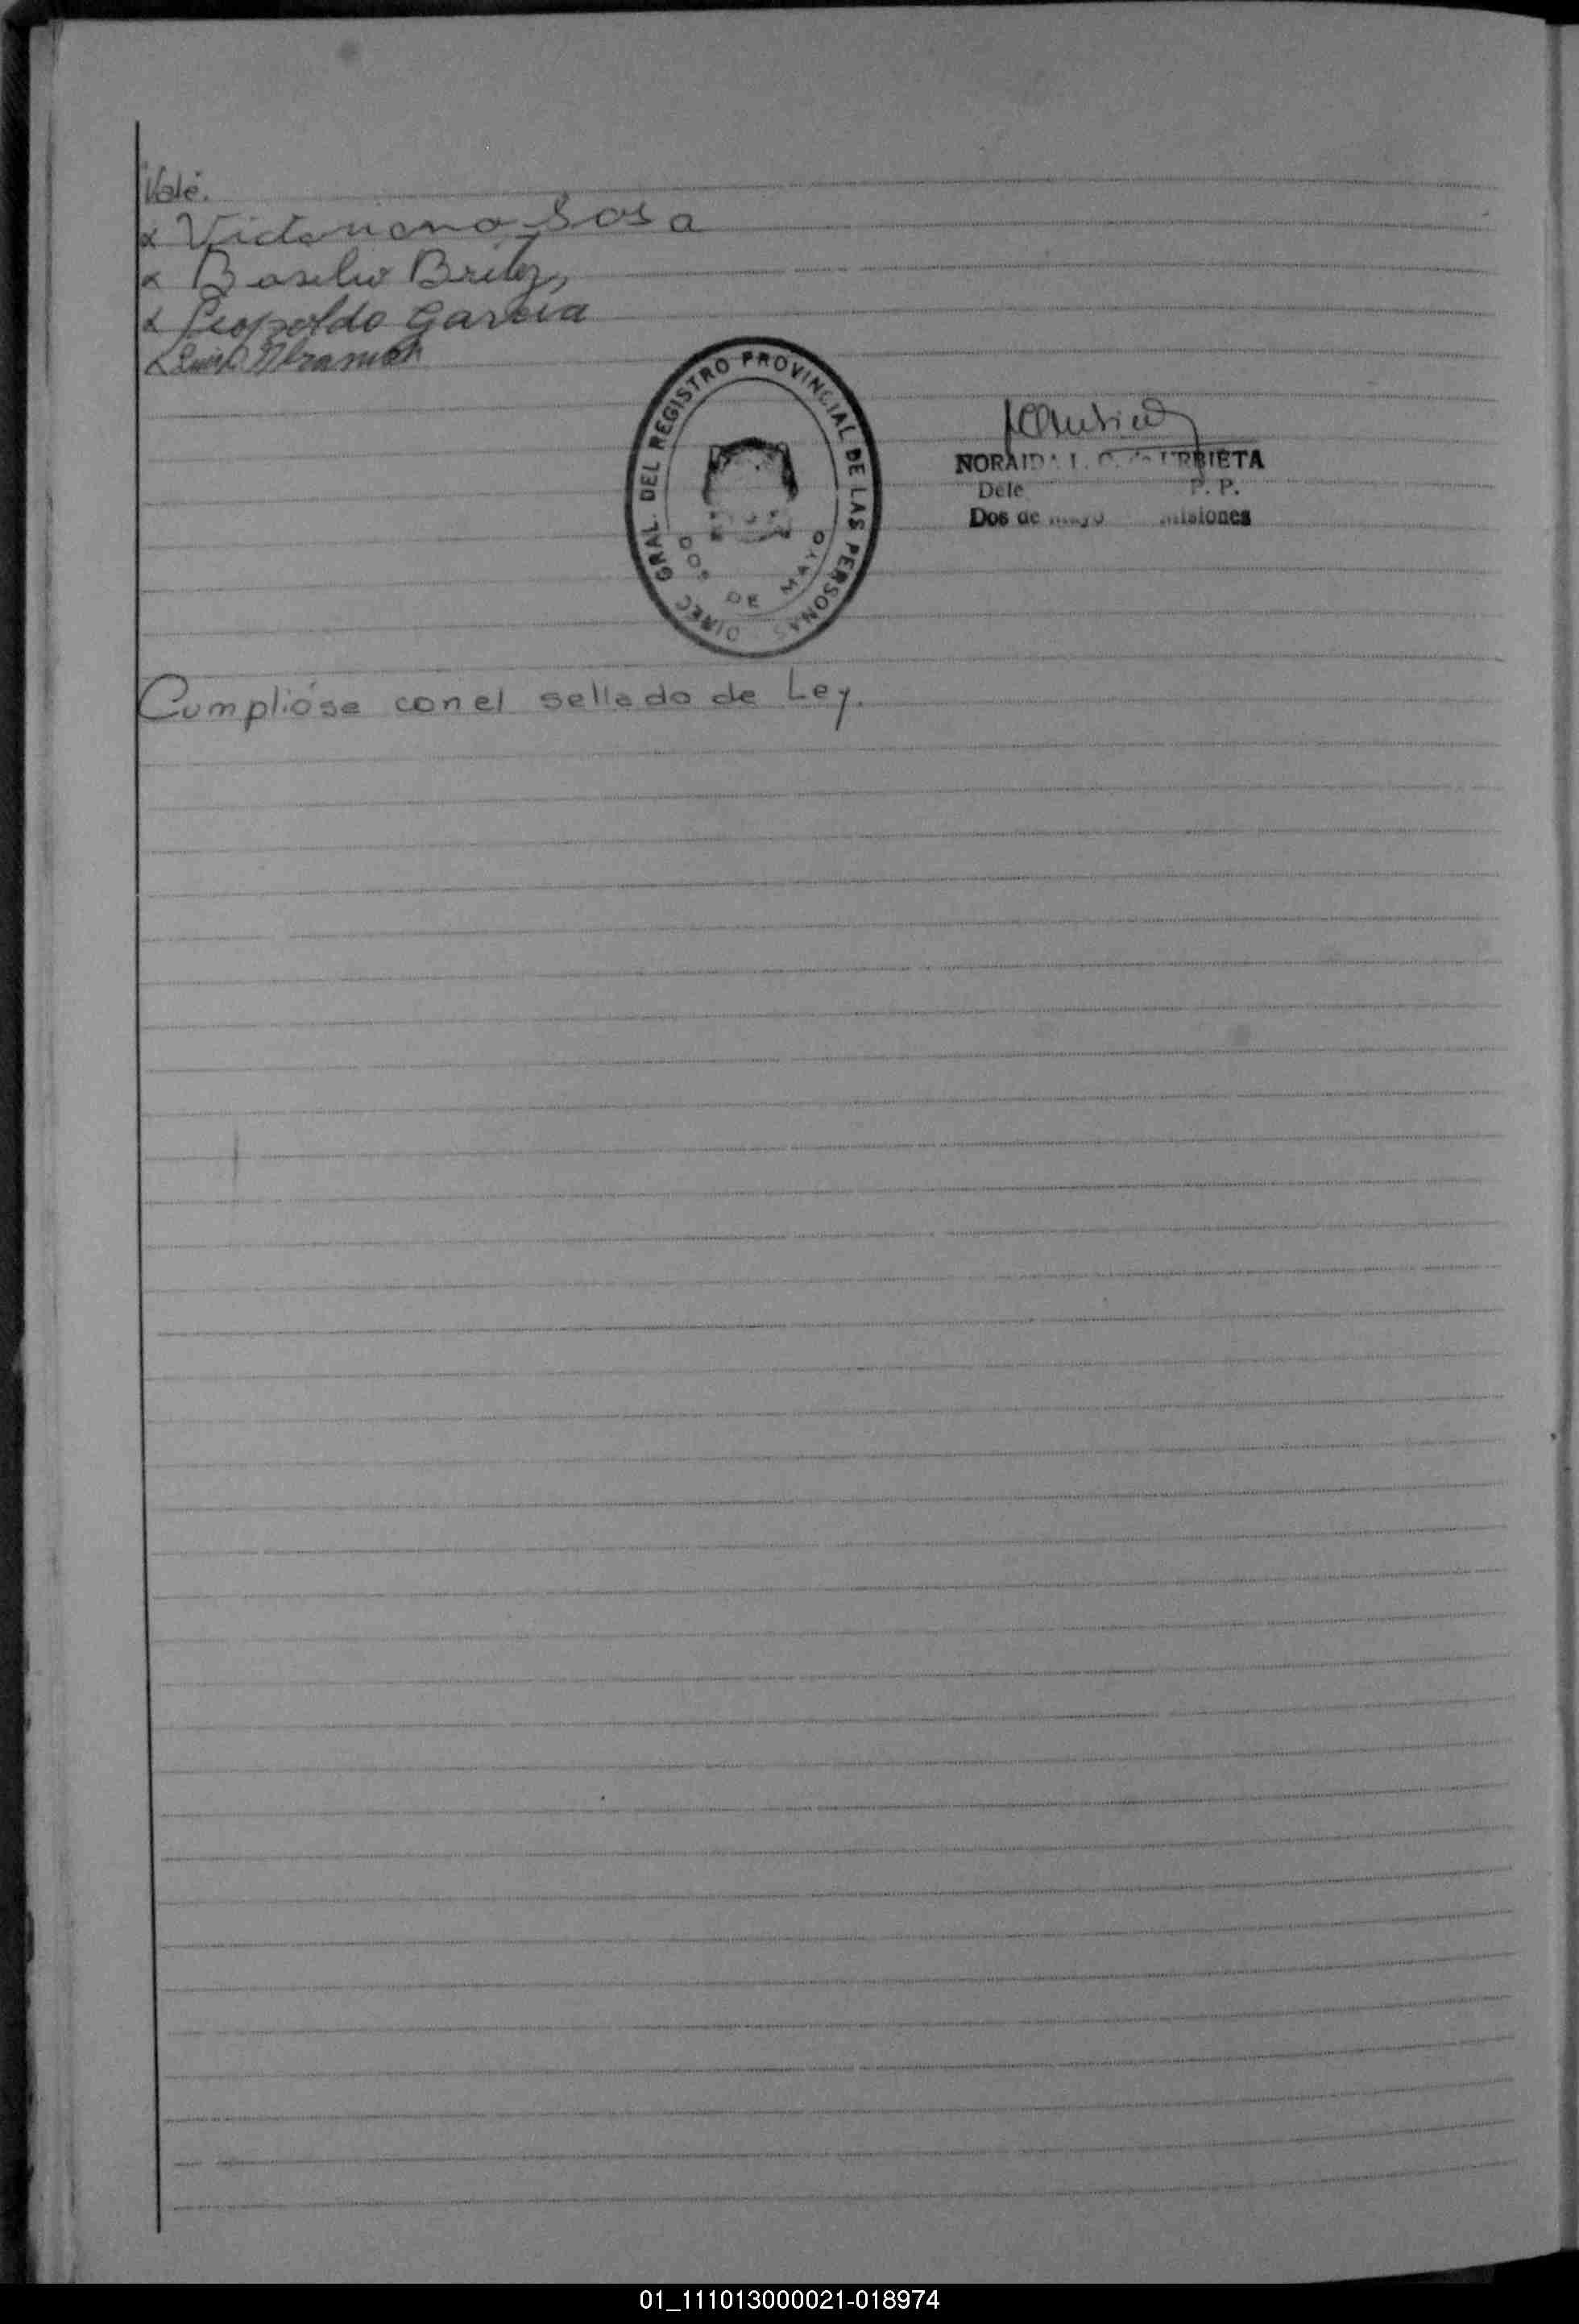 Vale.
x Victoriano Sosa
x Basilio Britez
x Leopoldo Garcia
x Luis
DIREC. GRAL. DEL REGISTRO PROVINCIAL DE LAS PERSONAS
DOS DE MAYO
NORAIDA L. C. de URBIETA
Dele P. P.
Dos de Mayo Misiones
Cumplióse con el sellado de Ley.
01_111013000021-018974